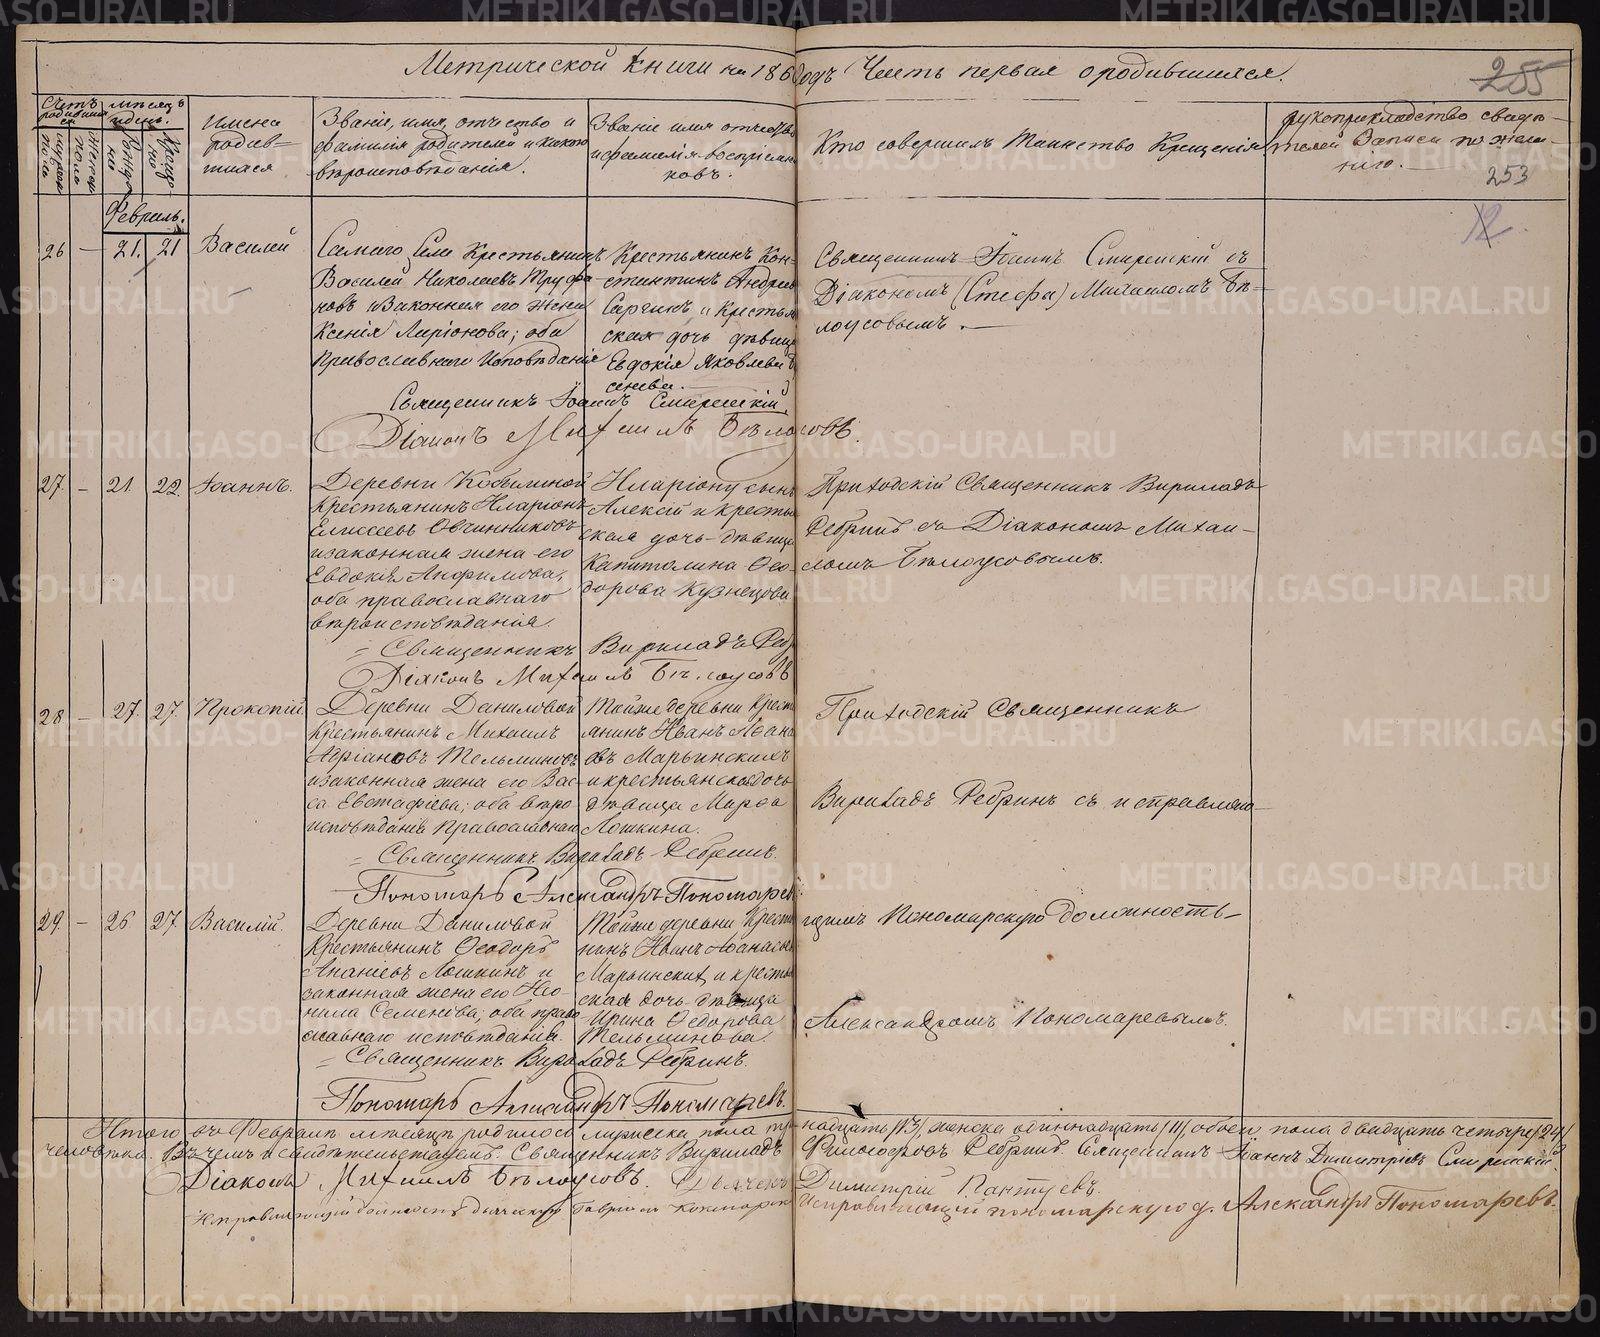 Метрической книги на 186 годъ Часть первая о родившихся.
255
Счетъ родившихся
мѣсяцъ и день.
Имена родившихся
Званіе, имя, отчество и фамилія родителей и какого вѣроисповѣданія.
Званіе имя отчество и фамилія воспріемниковъ.
Кто совершилъ Таинство Крещенія
рукоприкладство свидѣтелей Записи по желанію.
253
12.
Февраль.
26 — 21. 21 Василій
Крестьянинъ
Василій Николаевъ Труфановъ и Законная его жена
Ксенія Ларіонова; оба
Православнаго Исповѣданія
Крестьянинъ Константинъ Андреевъ
и Крестьянская дочь дѣвица
Евдокія Яковлева
Священникъ Іоаннъ Смиренскій съ
Діакономъ (Стефа) Михаиломъ Бѣлоусовымъ.
Священникъ Іоаннъ Смиренскій.
Діаконъ Михаилъ Бѣлоусовъ.
27. — 21. 22. Іоаннъ.
Деревни Кобылиной
Крестьянинъ Иларіонъ
Елисеевъ Овчинниковъ
и законная жена его
Евдокія Анфимова;
оба православнаго
вѣроисповѣданія.
Иларіону сынъ
Алексій и крестьянская дочь-дѣвица
Капитолина Ѳеодорова Кузнецова
Приходскій Священникъ Вириладъ
Ребринъ съ Діакономъ Михаиломъ Бѣлоусовымъ.
Священникъ Вириладъ Реб
Діаконъ Михаилъ Бѣлоусовъ
28 — 27. 27. Прокопій
Деревни Даниловой
Крестьянинъ Михаилъ
Адріановъ Тельминовъ
и законная жена его Васса Евстафіева; оба вѣроисповѣданія Православнаго
Тойже деревни Крестьянинъ Иванъ
Марьинскихъ
и крестьянская дочь
дѣвица Марѳа
Лошкина.
Приходскій Священникъ
Вириладъ Ребринъ съ исправляю
Священникъ Вириладъ Ребринъ.
Пономарь Александръ Пономаревъ
29. — 26 27. Василій.
Деревни Даниловой
Крестьянинъ Ѳеодоръ
Ананіевъ Лошкинъ и
законная жена его Неонила Семенова; оба православнаго исповѣданія.
Тойже деревни Крестьянинъ Иванъ Аѳанасьевъ
Марьинских и крестьянская дочь дѣвица
Ирина Ѳедорова
Тельминова.
щимъ Пономарскую должность
Александромъ Пономаревымъ.
Священникъ Вириладъ Ребринъ.
Пономарь Александръ Пономаревъ.
Итого въ Февралѣ мѣсяцѣ родилось мужеска пола тринадцать /13/, женска одиннадцать /11/, обоего пола двадцать четыре /24/
человѣка. Въ чемъ и свидѣтельствуемъ: Священникъ Вириладъ Философовъ Ребринъ. Священникъ Іоаннъ Димитріевъ Смиренскій.
Діаконъ Михаилъ Бѣлоусовъ. Дьячекъ Димитрій Пантуевъ.
Исправляющій должность дьячка Исправляющій пономарскую д. Александръ Пономаревъ.